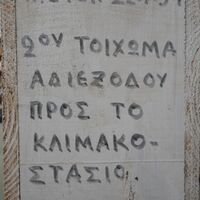 2ΟΥ ΤΟΙΧΩΜΑ
ΑΔΙΕΞΟΔΟΥ
ΠΡΟΣ ΤΟ
ΚΛΙΜΑΚΟ-
ΣΤΑΣΙΟ.